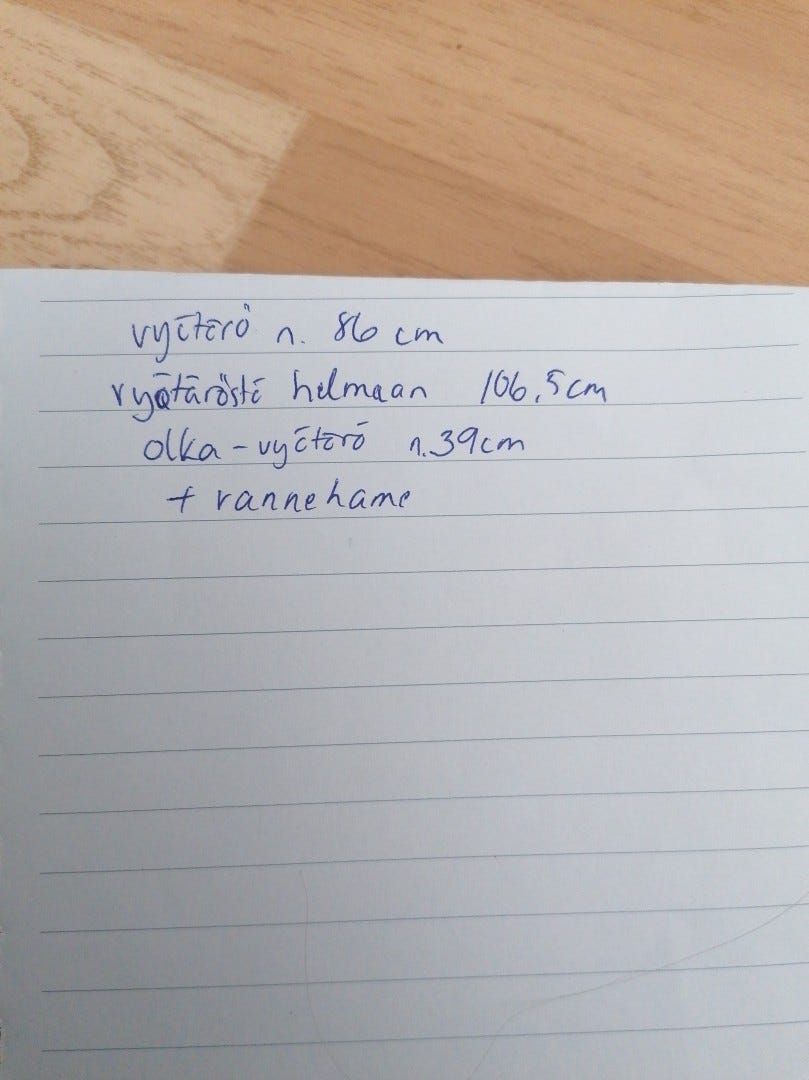 vyötärö n. 86 cm
vyötäröstä helmaan 106,5cm
olka-vyötärö n.39cm
+ rannehame